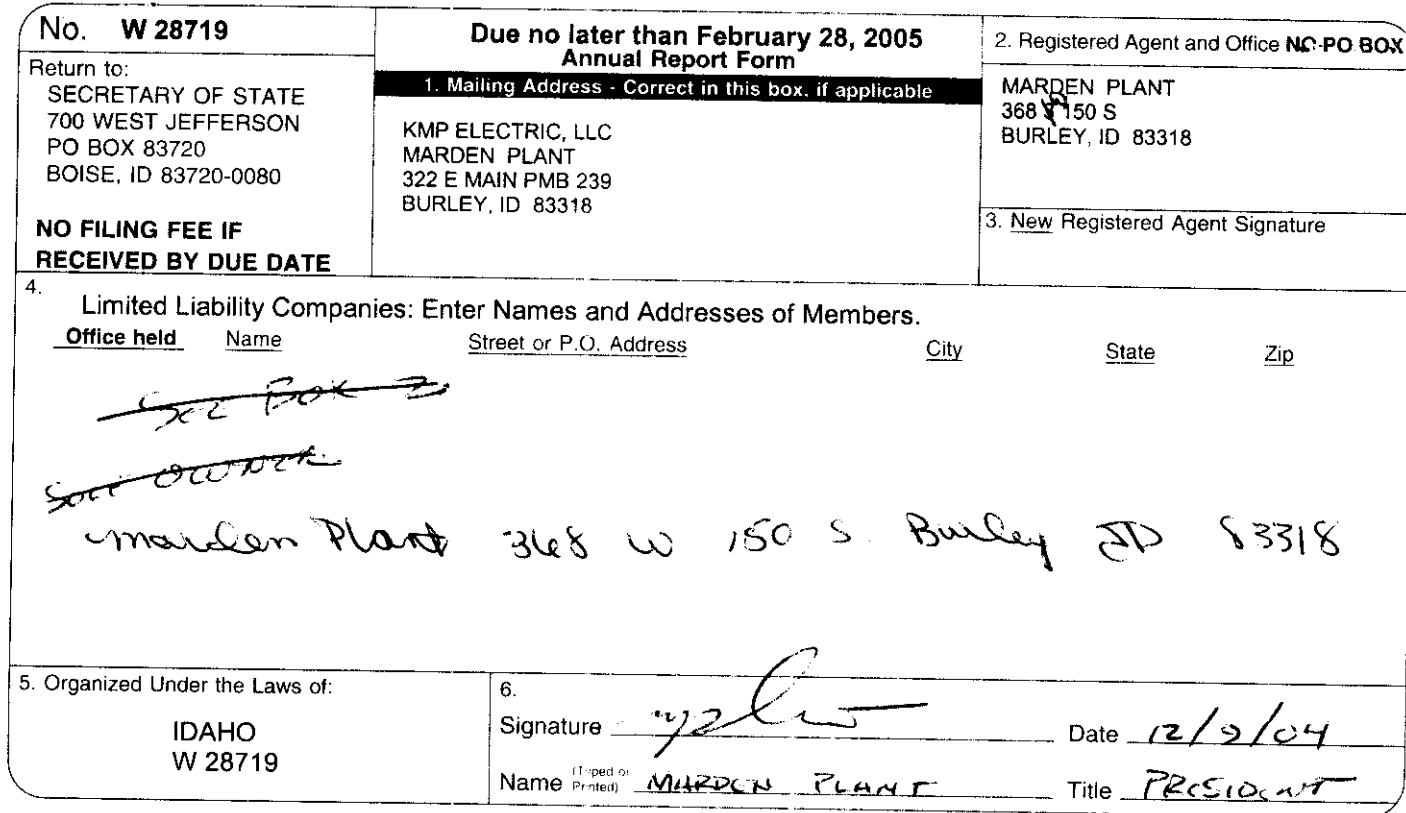 No. W 28719
Return to:
SECRETARY OF STATE
700 WEST JEFFERSON
PO BOX 83720
BOISE, ID 83720-0080
NO FILING FEE IF
RECEIVED BY DUE DATE
Due no later than February 28, 2005
Annual Report Form
1. Mailing Address - Correct in this box, if applicable
KMP ELECTRIC, LLC
MARDEN PLANT
322 E MAIN PMB 239
BURLEY, ID 83318
2. Registered Agent and Office NO PO BOX
MARDEN PLANT
368 W 150 S
BURLEY, ID 83318
3. New Registered Agent Signature
4.
Limited Liability Companies: Enter Names and Addresses of Members.
Office held Name Street or P.O. Address City State Zip
See Box 2
owner
Marden Plant 368 W 150 S. Burley ID 83318
5. Organized Under the Laws of:
IDAHO
W 28719
6.
Signature Date 12/9/04
Name (Typed or Printed) MARDEN PLANT Title PRESIDENT